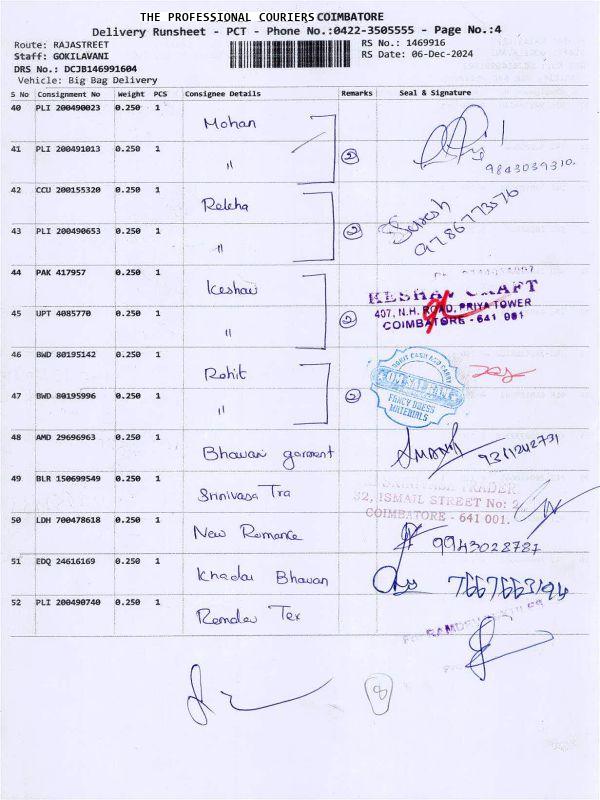 THE PROFESSIONAL COURIERS COIMBATORE
Delivery Runsheet - PCT - Phone No.:0422-3505555 - Page No.:4
Route: RAJASTREET
RS No.: 1469916
Staff: GOKILAVANI
RS Date: 06-Dec-2024
DRS No.: DCJB146991604
Vehicle: Big Bag Delivery
S No Consignment No Weight PCS Consignee Details Remarks Seal & Signature
40 PLI 200490023 0.250 1 Mohan
41 PLI 200491013 0.250 1 " 2 9843039310.
42 CCU 200155320 0.250 1 Rekha Suresh
43 PLI 200490653 0.250 1 " 2 9786773576
44 PAK 417957 0.250 1 Keshav
KESHAV CRAFT
407, N.H. ROAD, PRIYA TOWER
45 UPT 4085770 0.250 1 " 2 COIMBATORE - 641 001
46 BWD 80195142 0.250 1 Rohit
ROHIT CASH AND CARRY
47 BWD 80195996 0.250 1 " 2
FANCY DRESS
MATERIALS
48 AMD 29696963 0.250 1 Bhavani garment
49 BLR 150699549 0.250 1 Shrinivasa Tra
TRADER
32, ISMAIL STREET No: 2
COIMBATORE - 641 001.
50 LDH 700478618 0.250 1 New Romance 9943028787
51 EDQ 24616169 0.250 1 Khadai Bhavan 7667663194
52 PLI 200490740 0.250 1 Ramdev Tex
8